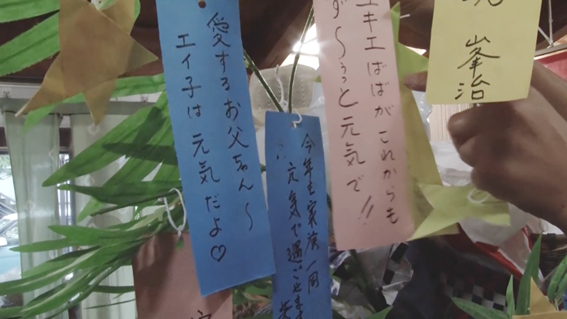 愛するお父ちゃん〜
エイ子は元気だよ♡
今年も家族一同
元気で過ごせます
ユキエばばがこれからも
ず〜ぅっと元気で!!
峯治